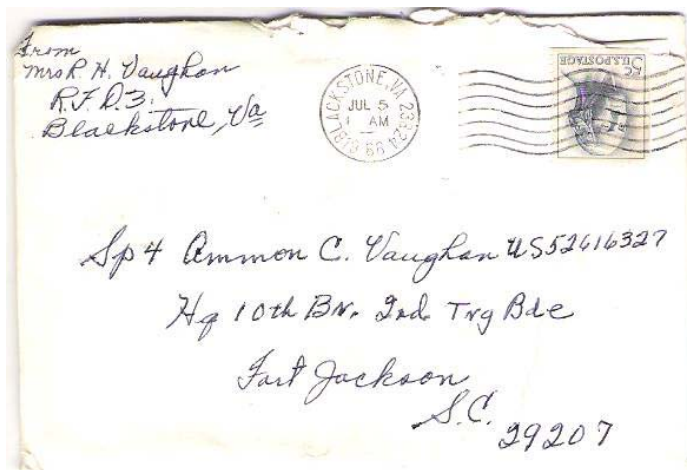 From
Mrs R. H. Vaughan
R.F.D. 3.
Blackstone, Va
BLACKSTONE, VA 23824
JUL 5
AM
1966
5¢
U.S. POSTAGE
Sp 4 Ammon C. Vaughan US52616327
Hq 10th BN. 2nd. Trg Bde
Fort Jackson
S.C.
29207